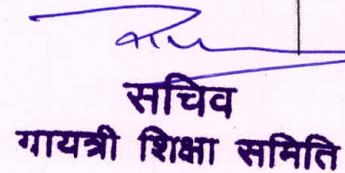 सचिव
गायत्री शिक्षा समिति